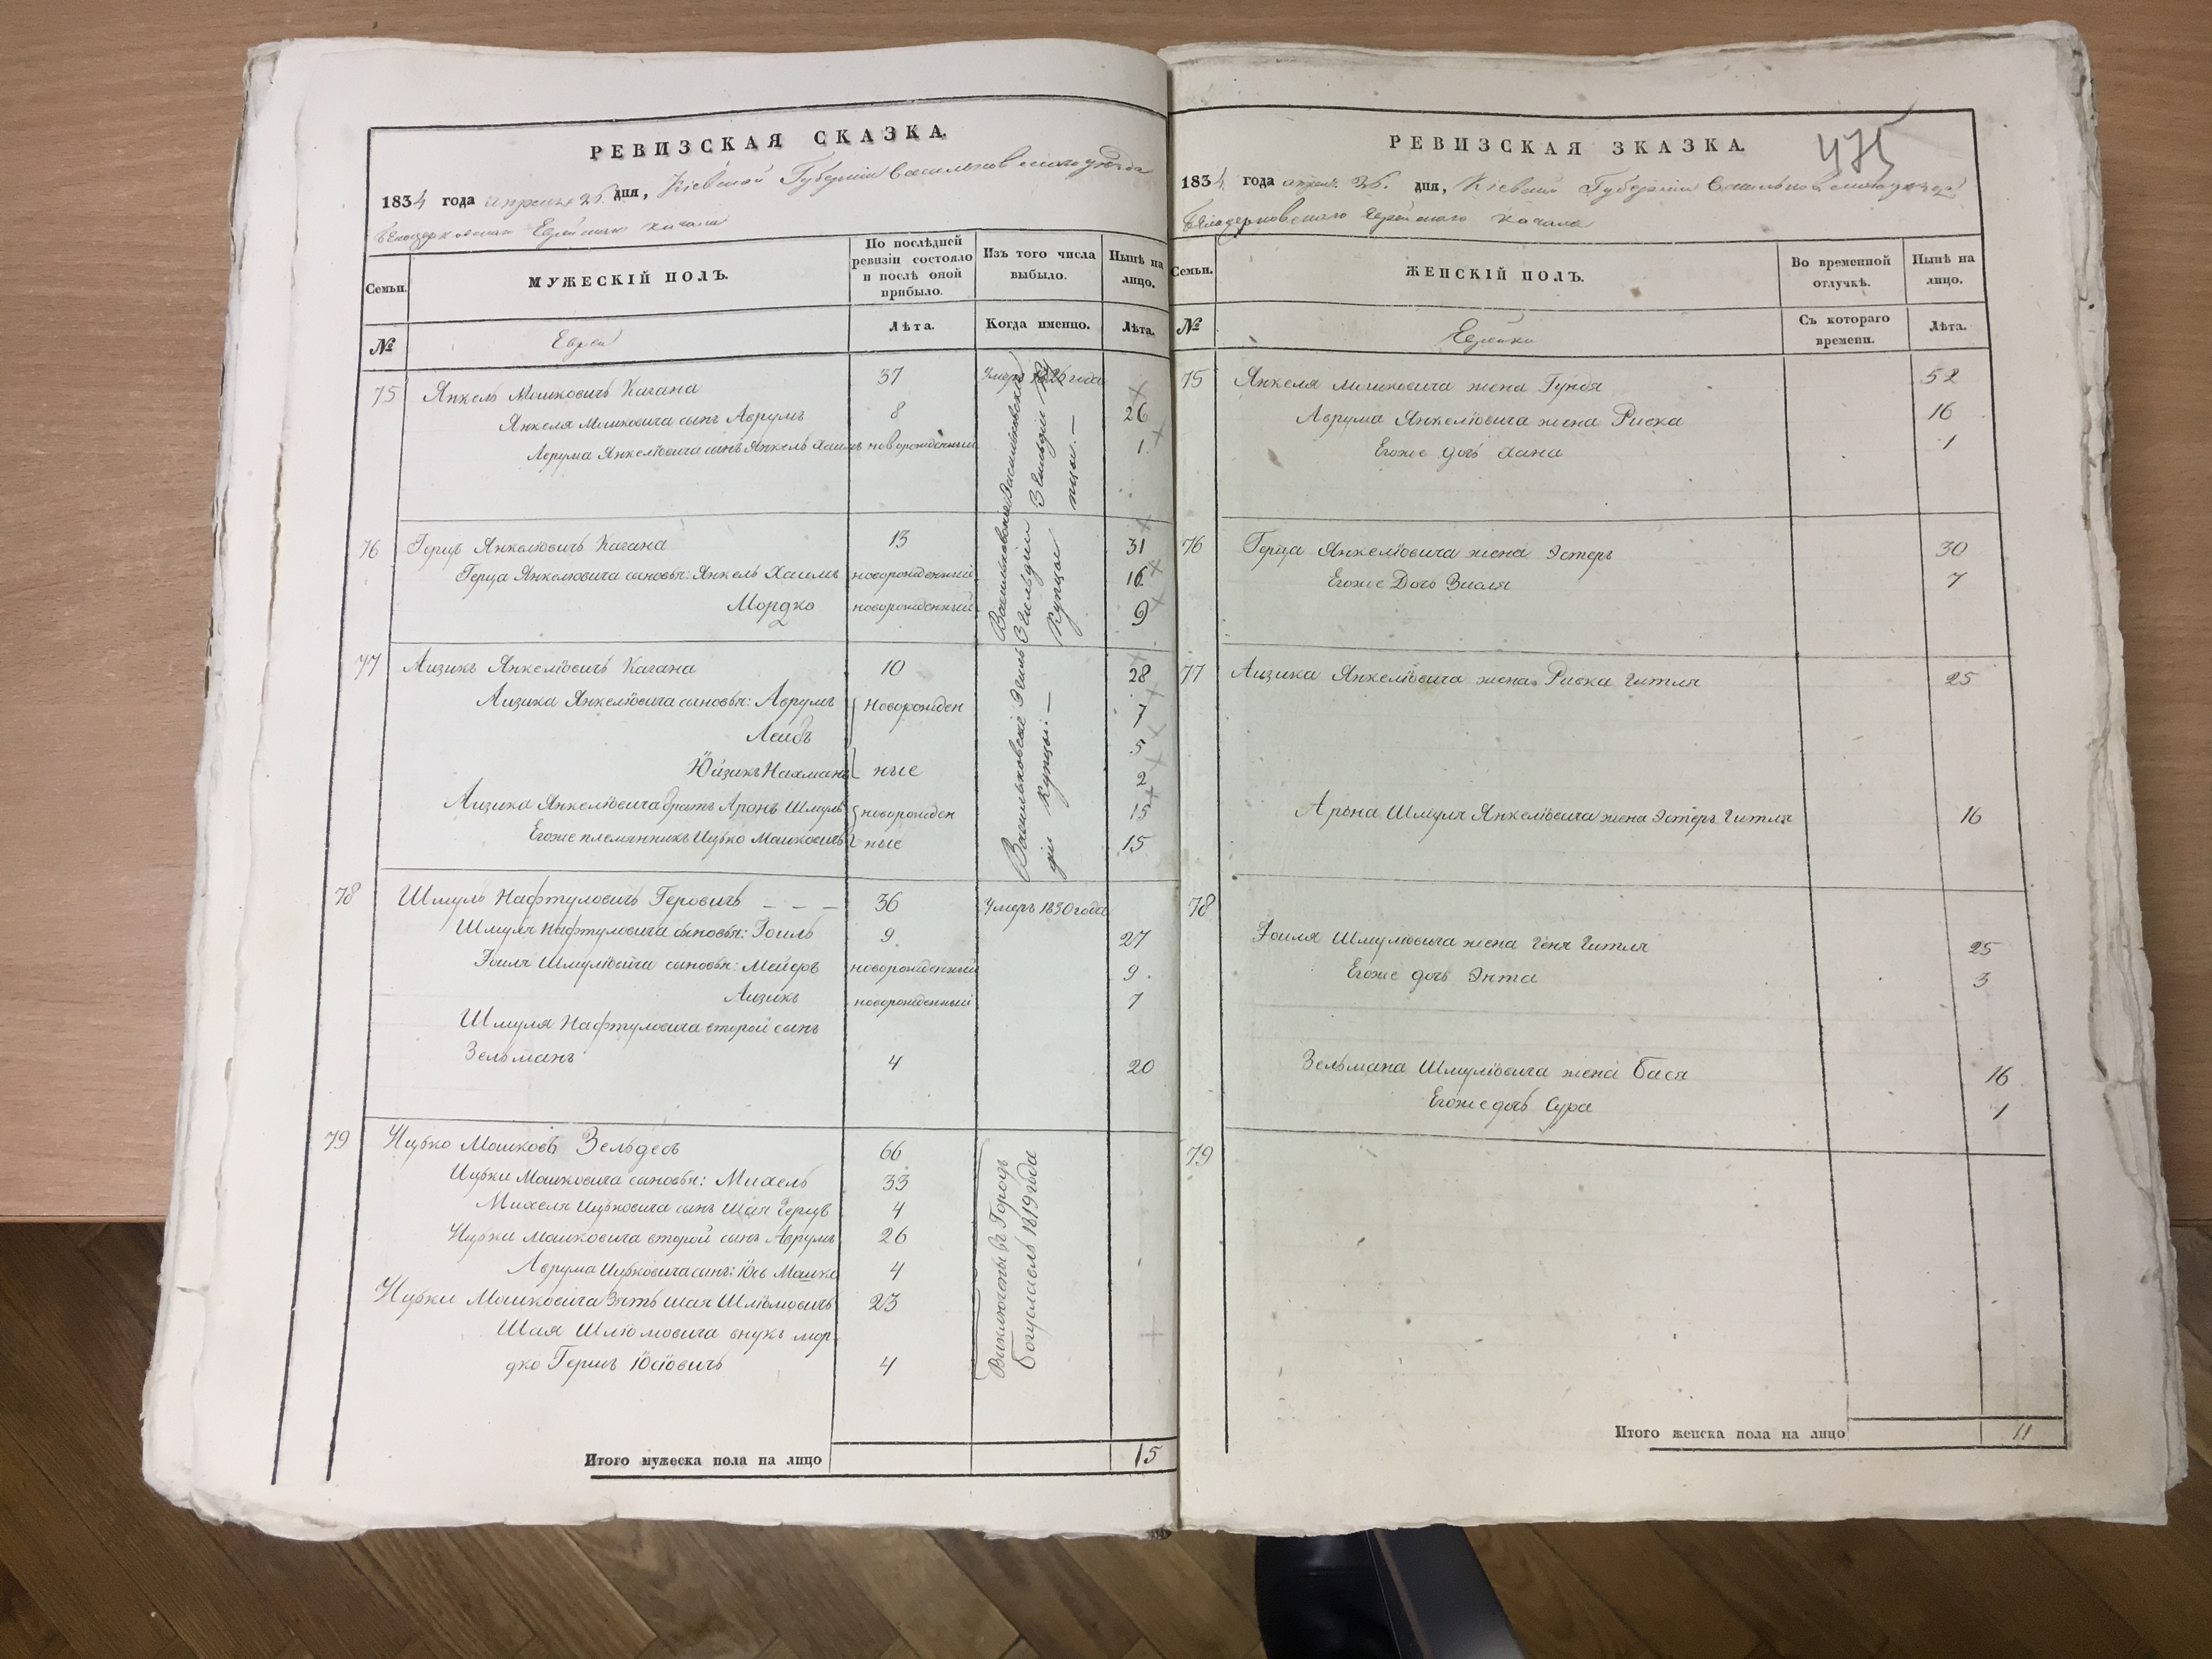 РЕВИЗСКАЯ СКАЗКА.
1834 года апреля 26 дня, Кіевской Губерніи Васильковскаго уѣзда
Бѣлоцерковскаго Еврейскаго Кагала
Семьи.
МУЖЕСКІЙ ПОЛЪ.
По послѣдней ревизіи состояло и послѣ оной прибыло.
Изъ того числа выбыло.
Нынѣ на лицо.
№
Евреи
Лѣта.
Когда именно.
Лѣта.
75 Янкель Мошковичъ Кагана 37 Умеръ года
Янкеля Мошковича сынъ Аврумъ 8 26
Аврума Янкелiовича сынъ Янкель Хаимъ новорожденный 1
Васильковские 3 Гильдіи
76 Герцъ Янкелiовичъ Кагана 13 31
Герца Янкелiовича сыновья: Янкель Хаимъ новорожденный 16
Мордко новорожденный 9
Васильковские 3 Гильдіи Купцы
77 Аизикъ Янкелiовичъ Кагана 10 28
Аизика Янкелiовича сыновья: Аврумъ новорожден 7
Лейбъ 5
Юйзикъ Нахманъ ные 2
Аизика Янкелiовича братъ Аронъ Шмуль новорожден 15
Егоже племянникъ Ицько Мошковичъ ные 15
Васильковскіе 3 Гильдіи Купцы: —
78 Шмуль Нафтуловичъ Геровичъ - - - 36 Умеръ 1830 года
Шмуля Нафтуловича сыновья: Іоиль 9 27
Іоиля Шмулiовича сыновья: Мейеръ новорожденный 9
Аизикъ новорожденный 7
Шмуля Нафтуловича второй сынъ
Зельманъ 4 20
79 Ицько Мошковъ Зельдесъ 66
Ицьки Мошковича сыновья: Михель 33
Михеля Ицьковича сынъ Шая Герцъ 4
Ицьки Мошковича второй сынъ Аврумъ 26
Аврума Ицьковича сынъ: Юсь Мошко 4
Ицьки Мошковича зять Шая Шлiомовичъ 23
Шая Шлiомовича внукъ Мор-
дко Гершъ Юсiовичъ 4
Выключены въ Городъ
Богуславль 1819 года
Итого мужеска пола на лицо 15
РЕВИЗСКАЯ ЗКАЗКА.
475
1834 года апреля 26. дня, Кіевской Губерніи Васильковскаго уѣзда
Бѣлоцерковскаго Еврейскаго Кагала
Семьи.
ЖЕНСКІЙ ПОЛЪ.
Во временной отлучкѣ.
Нынѣ на лицо.
№
Еврейки
Съ котораго времени.
Лѣта.
75 Янкеля Мошковича жена Гундя 52
Аврума Янкелiовича жена Ривка 16
Егоже дочь Хана 1
76 Герца Янкелiовича жена Эстеръ 30
Егоже Дочь 7
77 Аизика Янкелiовича жена Ривка Гитля 25
Арона Шмуля Янкелiовича жена Эстеръ Гитля 16
78
Іоиля Шмулiовича жена Геня Гитля 25
Егоже дочь Энта 3
Зельмана Шмулiовича жена Бася 16
Егоже дочь Сура 1
79
Итого женска пола на лицо 11